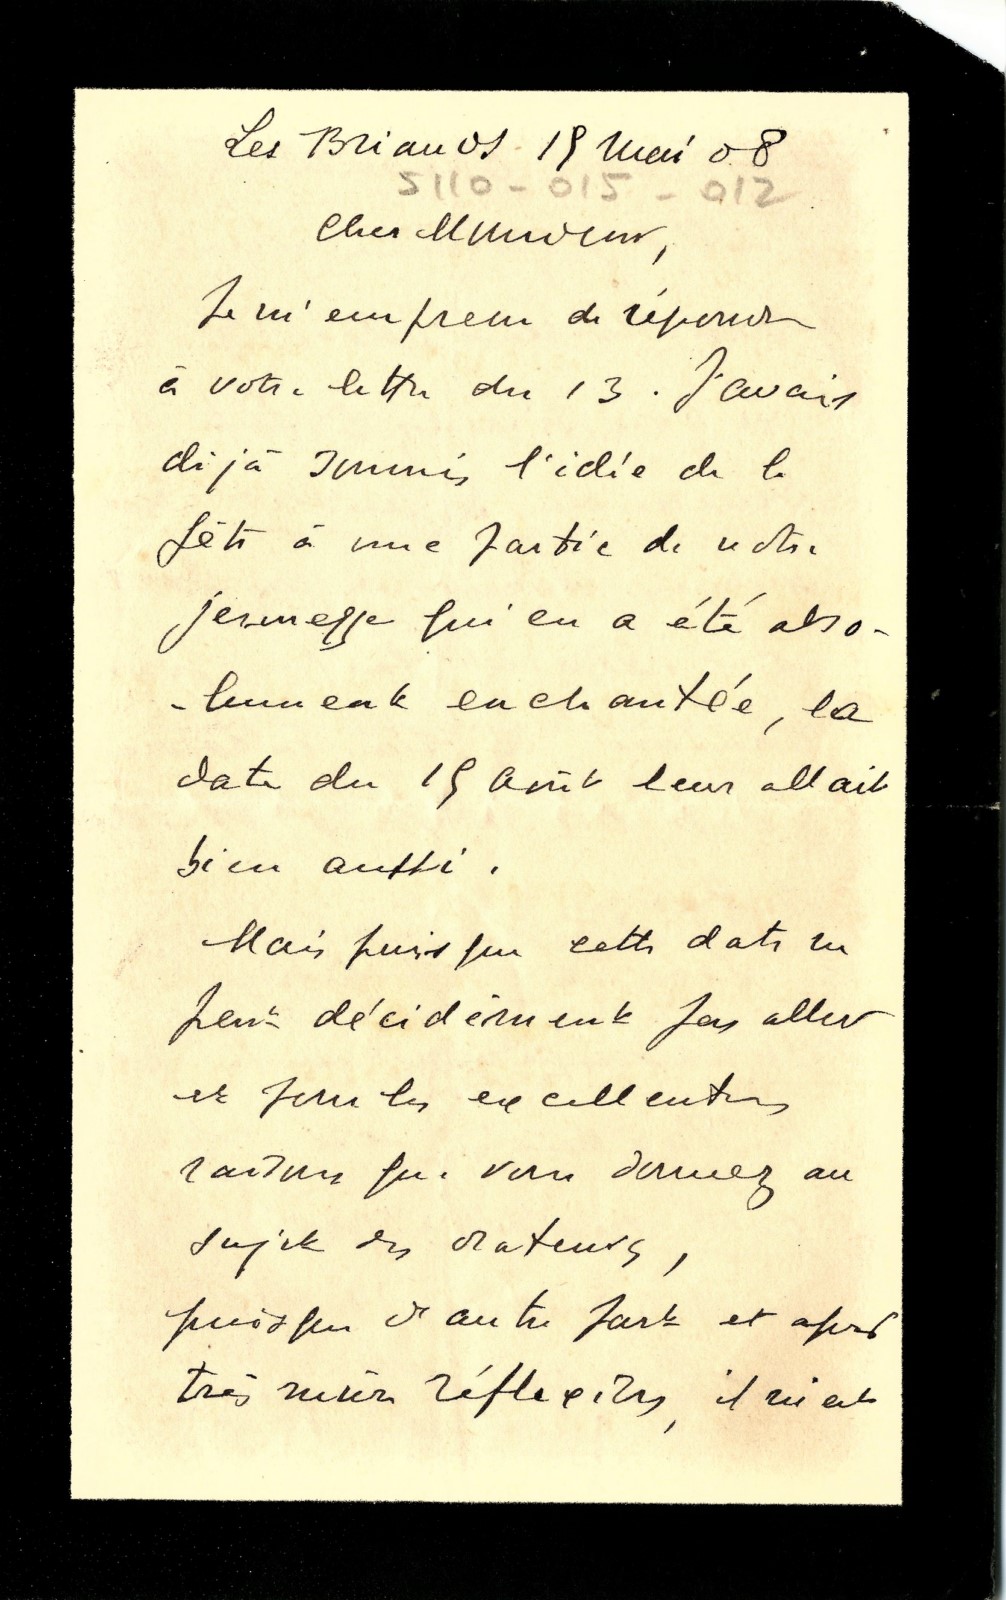 Les Briands. 15 Mai 08
5110-015-012
Cher Monsieur,
Je m'empresse de répondre
à votre lettre du 13. J'avais
déjà soumis l'idée de la
fête à une partie de notre
jeunesse qui en a été abso-
-lument enchantée, la
date du 15 Août leur allait
bien aussi.
Mais puisque cette date ne
peut décidément pas aller
et pour les excellentes
raisons que vous donnez au
sujet des orateurs,
puisque d'autre part et après
très mûre réflexion, il m'est